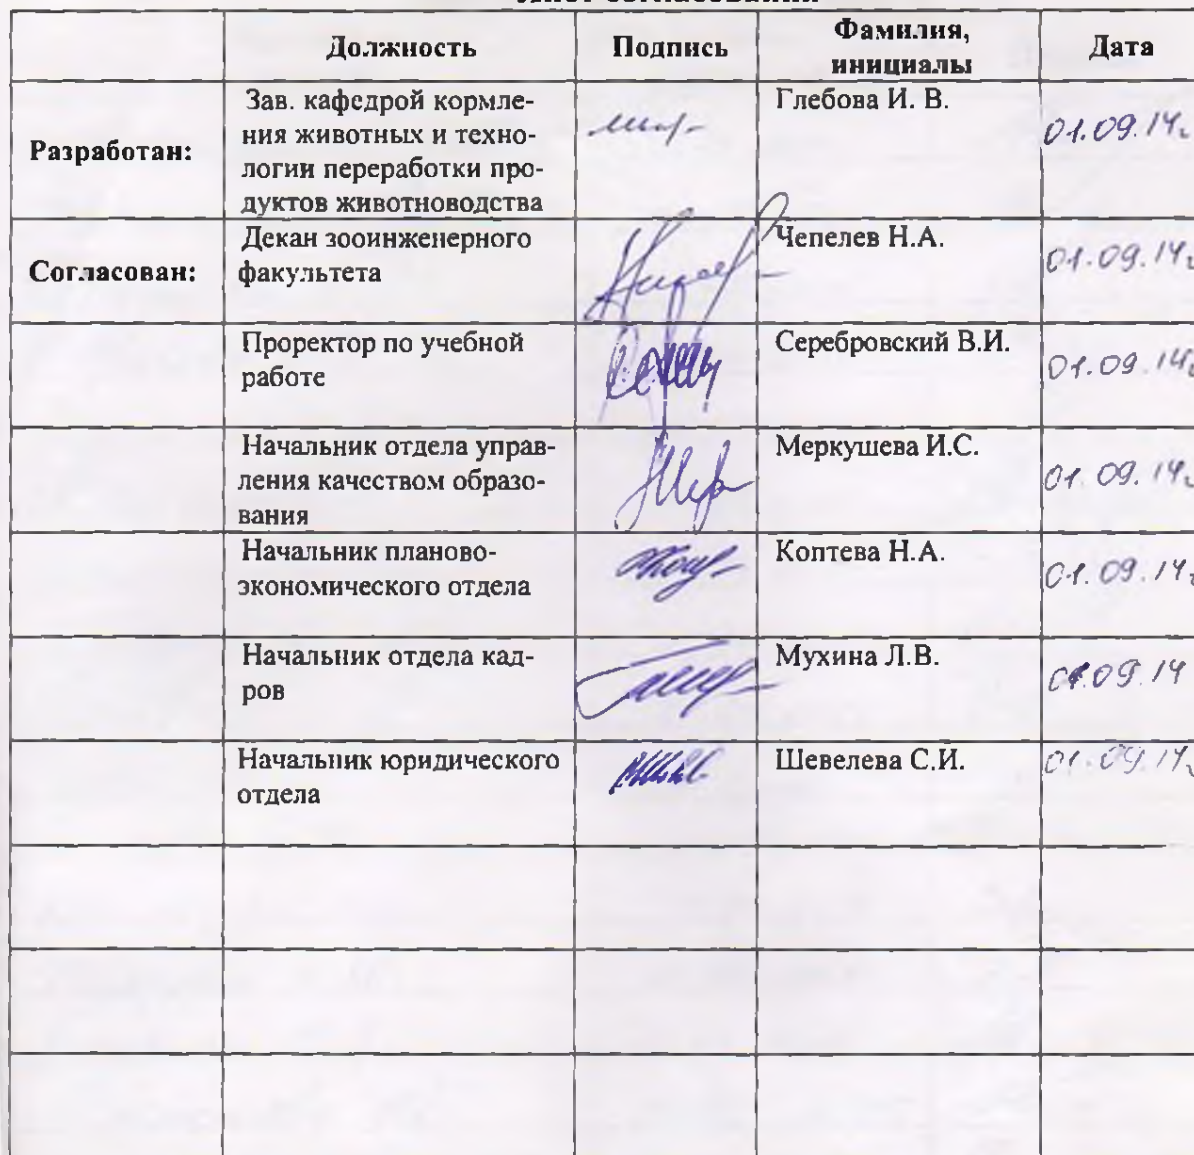 Должность Подпись Фамилия, Дата
инициалы
Разработан:
Зав. кафедрой кормле-
ния животных и техно-
логии переработки про-
дуктов животноводства
Глебова И. В.
01.09.14г
Согласован:
Декан зооинженерного
факультета
Чепелев Н.А.
01.09.14г
Проректор по учебной
работе
Серебровский В.И.
01.09.14г
Начальник отдела управ-
ления качеством образо-
вания
Меркушева И.С.
01.09.14г
Начальник планово-
экономического отдела
Коптева Н.А.
01.09.14г
Начальник отдела кад-
ров
Мухина Л.В.
01.09.14
Начальник юридического
отдела
Шевелева С.И.
01.09.14г